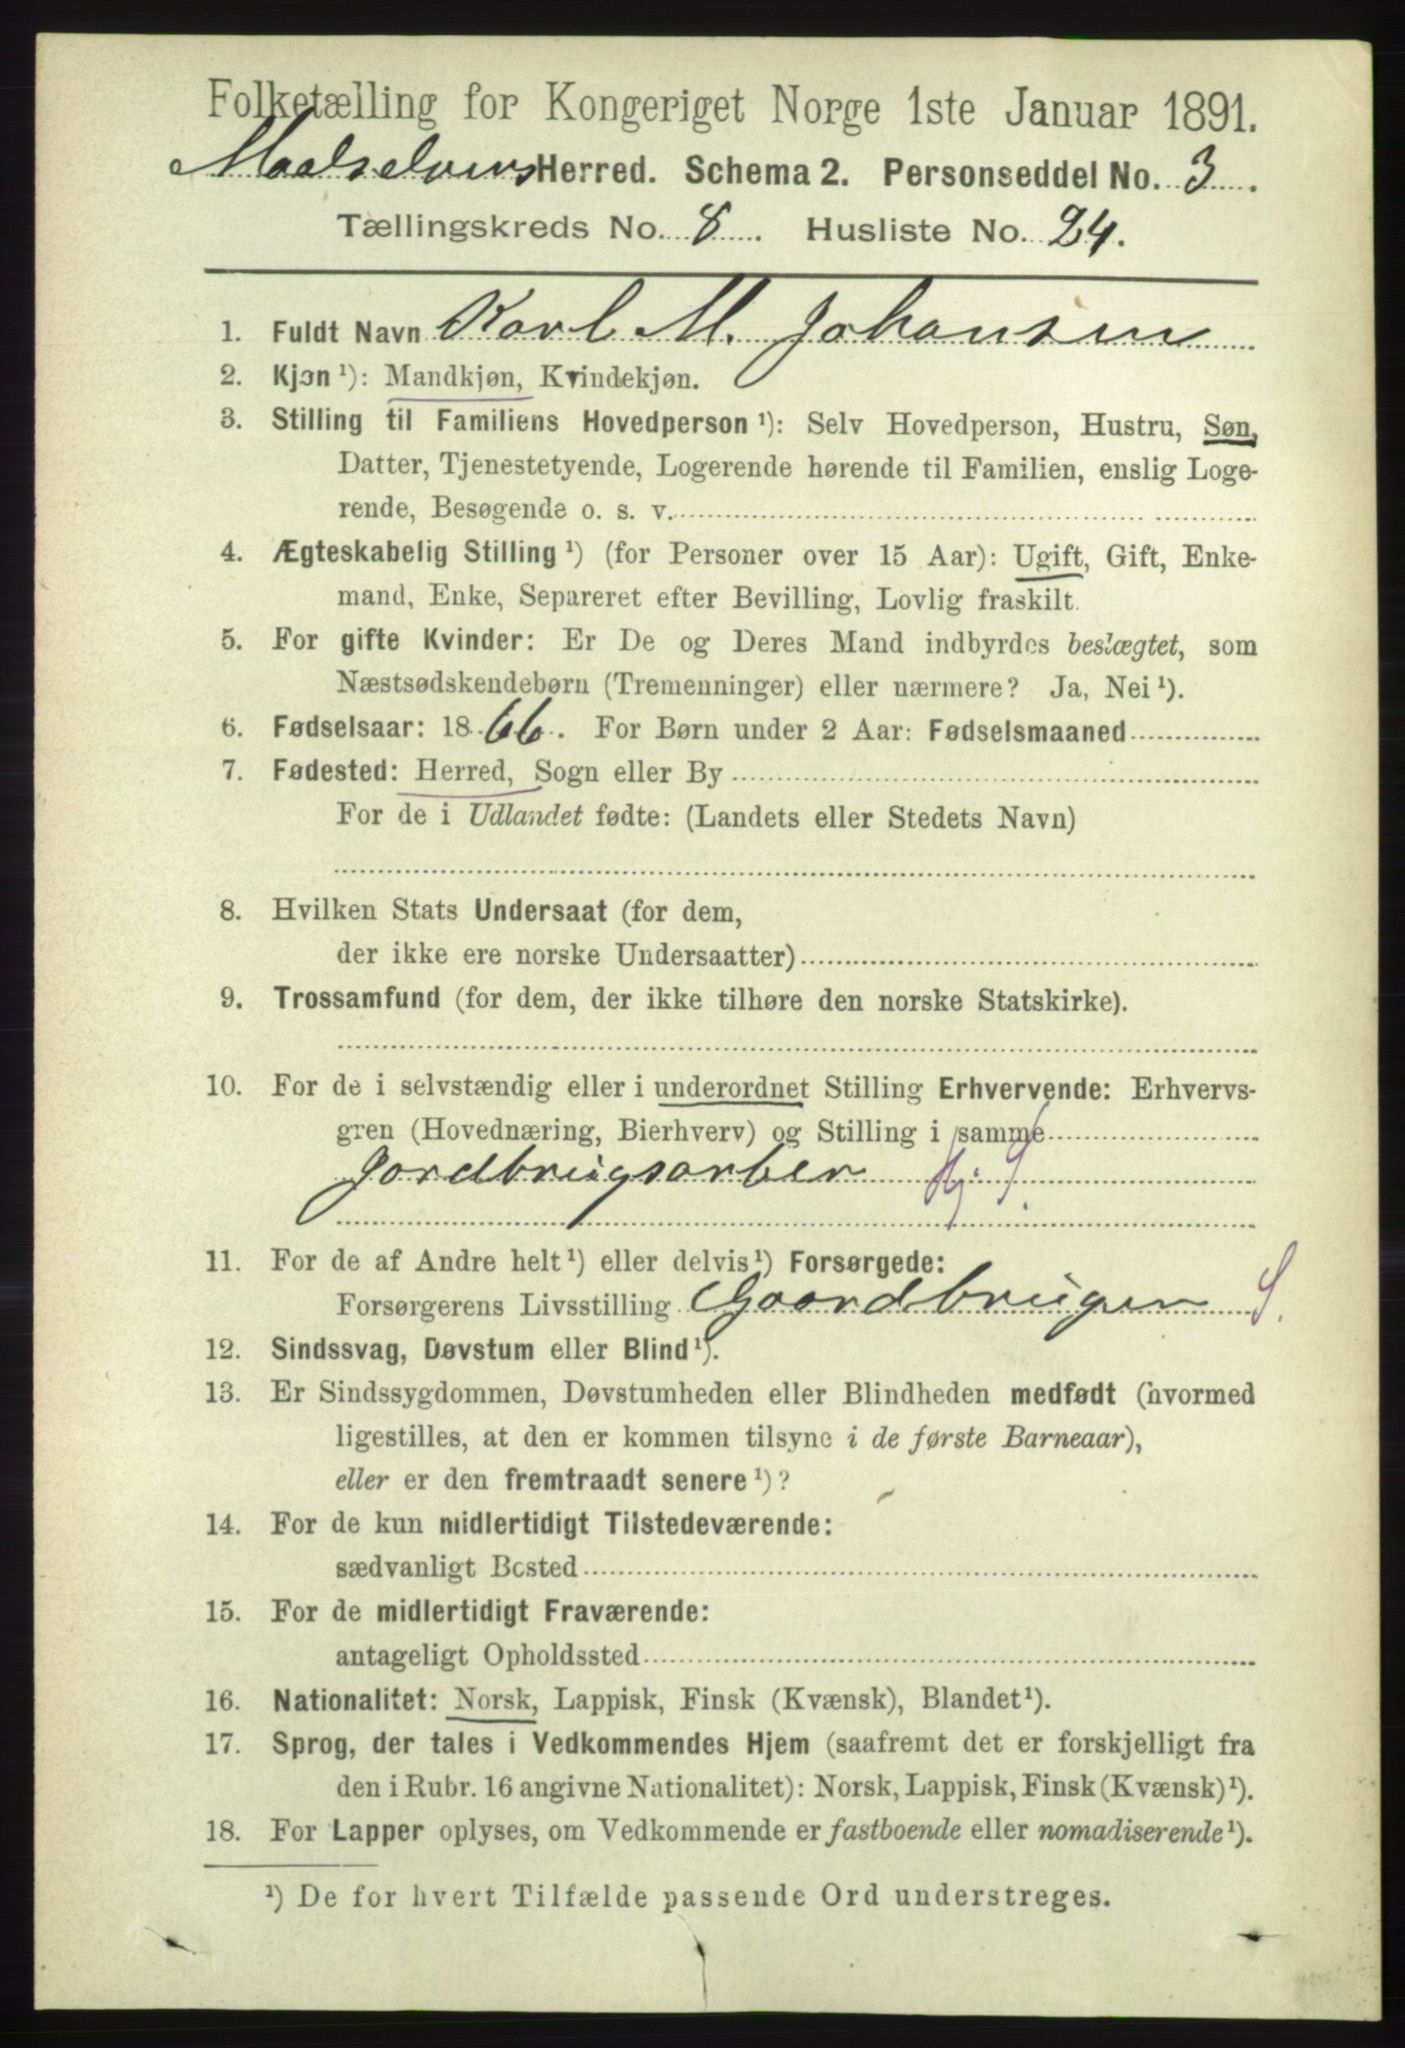 Folketælling for Kongeriget Norge 1ste Januar 1891.
Maalselvens Herred. Schema 2. Personseddel No. 3.
Tællingskreds No. 8. Husliste No. 24.
1. Fuldt Navn Karl M. Johansen
2. Kjøn ¹): Mandkjøn, Kvindekjøn.
3. Stilling til Familiens Hovedperson ¹): Selv Hovedperson, Hustru, Søn,
Datter, Tjenestetyende, Logerende hørende til Familien, enslig Loge-
rende, Besøgende o. s. v.
4. Ægteskabelig Stilling ¹) (for Personer over 15 Aar): Ugift, Gift, Enke-
mand, Enke, Separeret efter Bevilling, Lovlig fraskilt.
5. For gifte Kvinder: Er De og Deres Mand indbyrdes beslægtet, som
Næstsødskendebørn (Tremenninger) eller nærmere? Ja, Nei ¹).
6. Fødselsaar: 1866. For Børn under 2 Aar: Fødselsmaaned
7. Fødested: Herred, Sogn eller By
For de i Udlandet fødte: (Landets eller Stedets Navn)
8. Hvilken Stats Undersaat (for dem,
der ikke ere norske Undersaatter)
9. Trossamfund (for dem, der ikke tilhøre den norske Statskirke).
10. For de i selvstændig eller i underordnet Stilling Erhvervende: Erhvervs-
gren (Hovednæring, Bierhverv) og Stilling i samme
Jordbrugsarber Hj. S.
11. For de af Andre helt ¹) eller delvis ¹) Forsørgede:
Forsørgerens Livsstilling Gaardbruger S.
12. Sindssvag, Døvstum eller Blind ¹).
13. Er Sindssygdommen, Døvstumheden eller Blindheden medfødt (hvormed
ligestilles, at den er kommen tilsyne i de første Barneaar),
eller er den fremtraadt senere ¹)?
14. For de kun midlertidigt Tilstedeværende:
sædvanligt Bosted
15. For de midlertidigt Fraværende:
antageligt Opholdssted
16. Nationalitet: Norsk, Lappisk, Finsk (Kvænsk), Blandet ¹).
17. Sprog, der tales i Vedkommendes Hjem (saafremt det er forskjelligt fra
den i Rubr. 16 angivne Nationalitet): Norsk, Lappisk, Finsk (Kvænsk) ¹).
18. For Lapper oplyses, om Vedkommende er fastboende eller nomadiserende ¹).
¹) De for hvert Tilfælde passende Ord understreges.